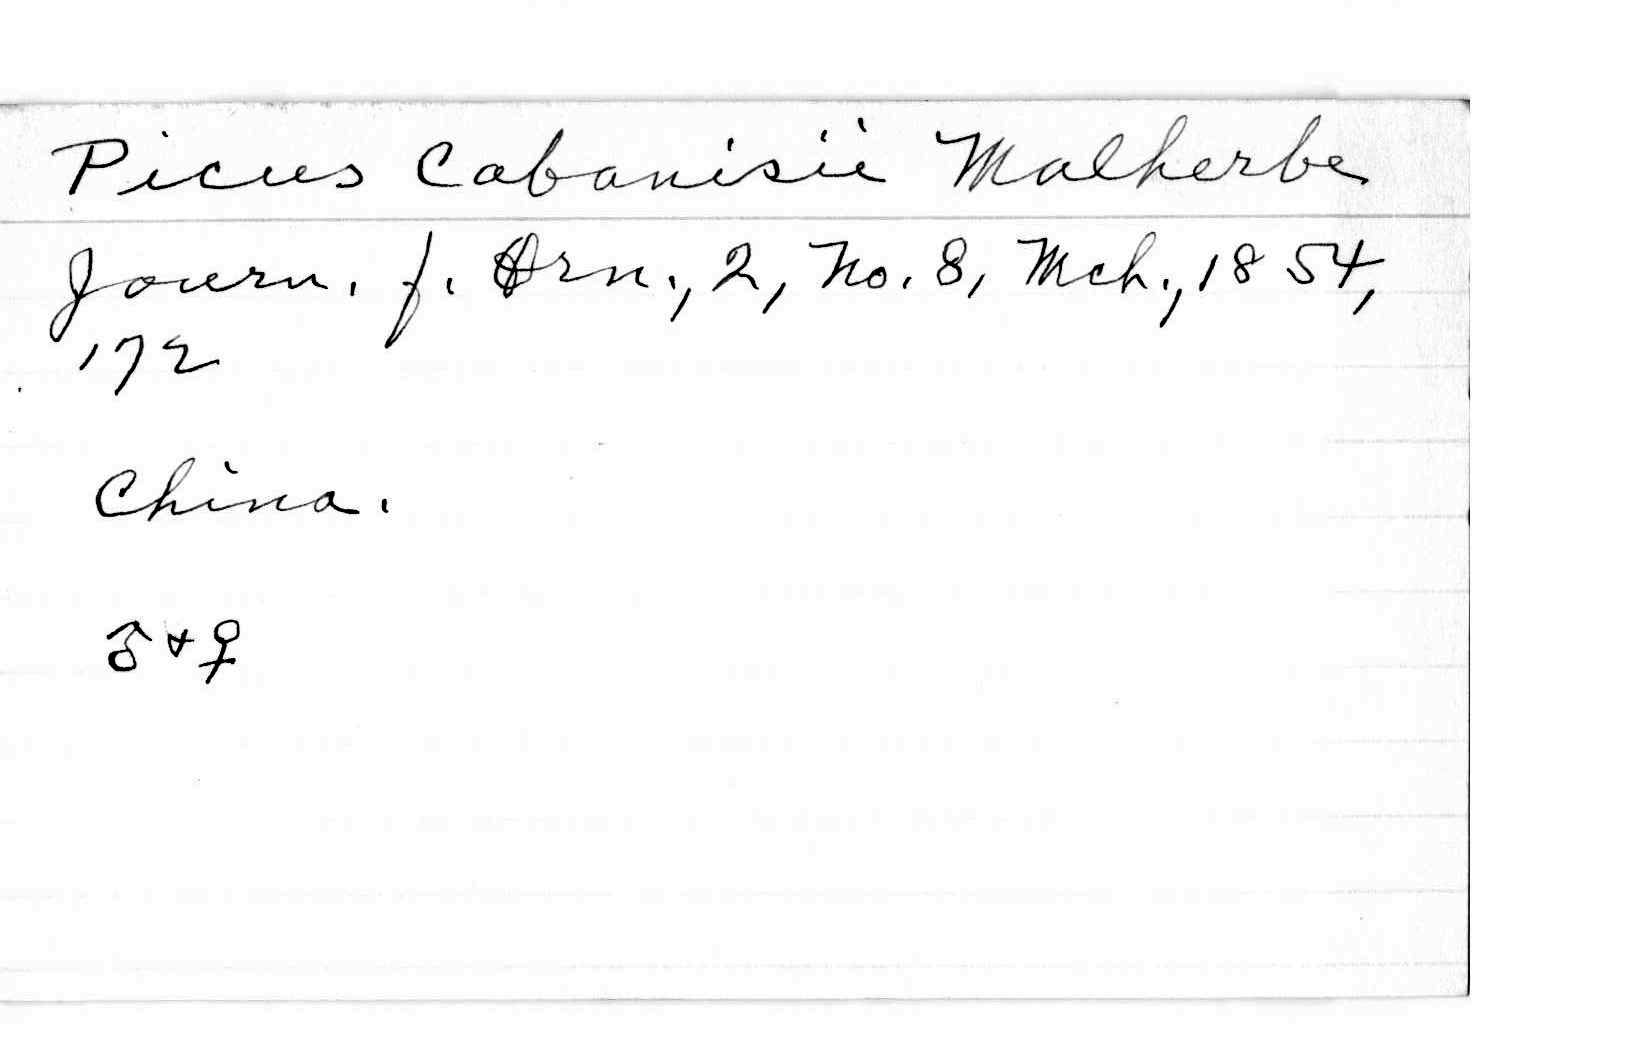 Picus Cabanisii Malherbe
Journ. f. Orn., 2, No. 8, Mch., 1854,
172
China.
♂ + ♀